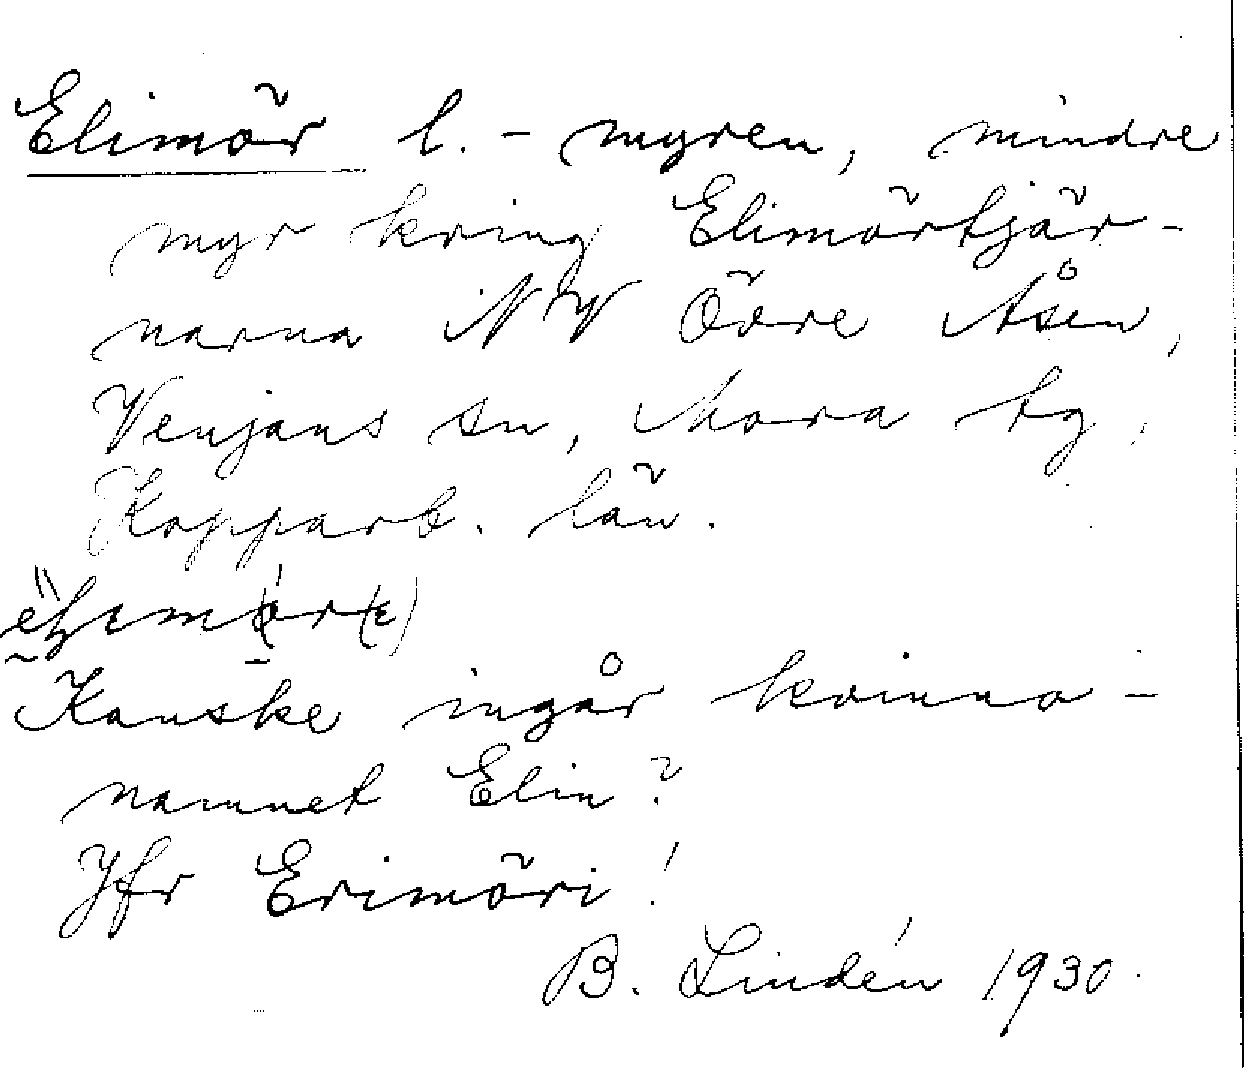 Elimör l. -myren, mindre
myr kring Elimörtjär-
narna NV Övre Åsen,
Venjans sn, Mora tg,
Kopparb. län.
Kanske ingår kvinno-
namnet Elin?
Jfr Erimöri!
B. Lindén 1930.